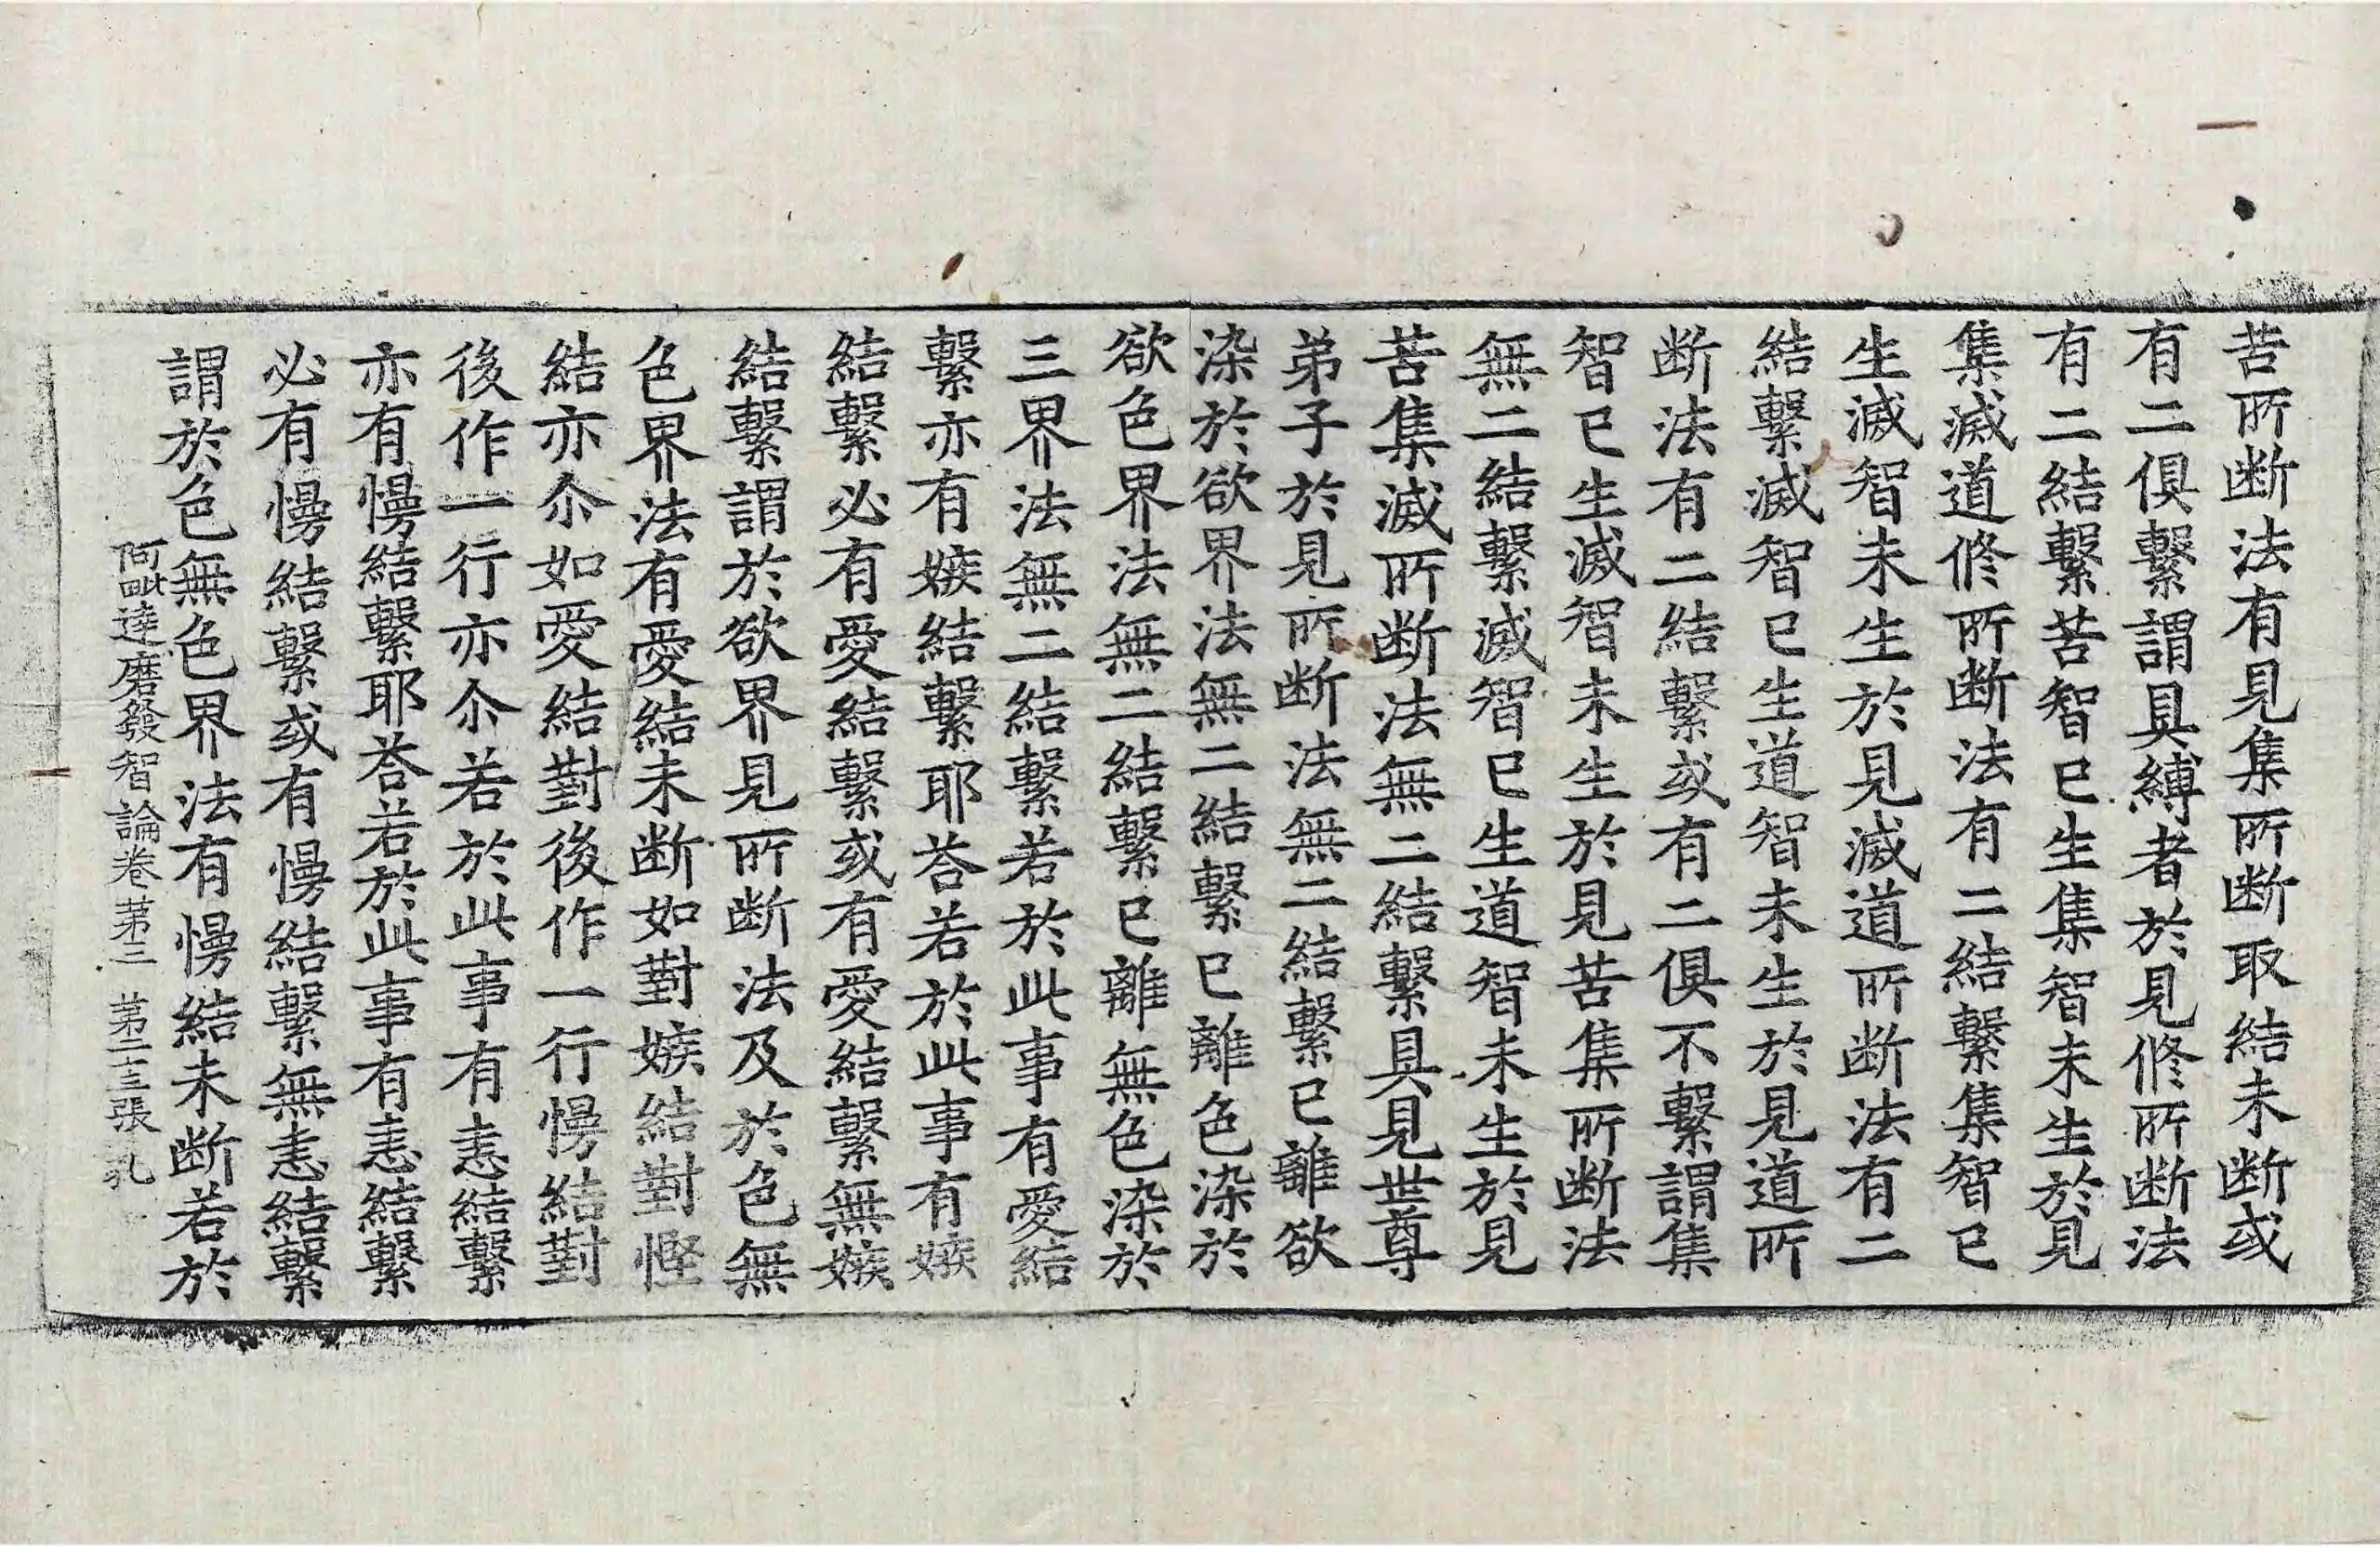 苦所断法有見集所断取結未断或
有二俱繫謂具縛者於見修所断法
有二結繫苦智已生集智未生於見
集滅道修所断法有二結繫集智已
生滅智未生於見滅道所断法有二
結繫滅智已生道智未生於見道所
断法有二結繫或有二俱不繫謂集
智已生滅智未生於見苦集所断法
無二結繫滅智已生道智未生於見
苦集滅所断法無二結繫具見世尊
弟子於見所断法無二結繫已離欲
染於欲界法無二結繫已離色染於
欲色界法無二結繫已離無色染於
三界法無二結繫若於此事有愛結
繫亦有嫉結繫耶荅若於此事有嫉
結繫必有愛結繫或有愛結繫無嫉
結繫謂於欲界見所断法及於色無
色界法有愛結未断如對嫉結對慳
結亦尒如愛結對後作一行慢結對
後作一行亦尒若於此事有恚結繫
亦有慢結繫耶荅若於此事有恚結繫
必有慢結繫或有慢結繫無恚結繫
謂於色無色界法有慢結未断若於
阿毗達磨發智論卷第三 第二十三張 孔